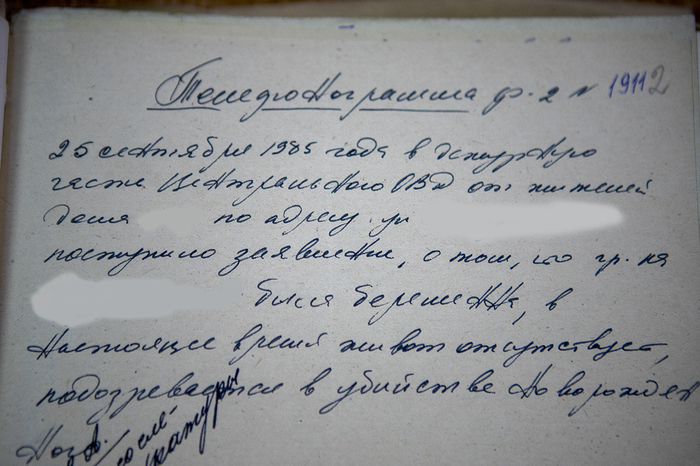 Телефонограмма ф. 2 № 19112
25 сентября 1985 года в дежурную
часть Центрального ОВД от жителей
дома по адресу ул
поступило заявление, о том, что гр. ка
была беременна, в
настоящее время живот отсутствует,
подозревается в убийстве новорожден
ного.